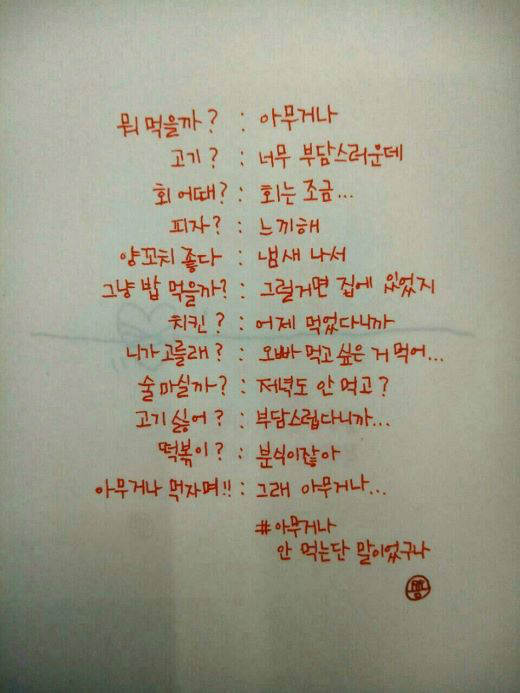 뭐 먹을까? : 아무거나
고기? : 너무 부담스러운데
회 어때? : 회는 조금...
피자? : 느끼해
양꼬치 좋다 : 냄새 나서
그냥 밥 먹을까? : 그럴거면 집에 있었지
치킨? : 어제 먹었다니까
니가 고를래? : 오빠 먹고 싶은 거 먹어...
술 마실까? : 저녁도 안 먹고?
고기 싫어? : 부담스럽다니까...
떡볶이? : 분식이잖아
아무거나 먹자며!! : 그래 아무거나...
#아무거나
안 먹는단 말이었구나